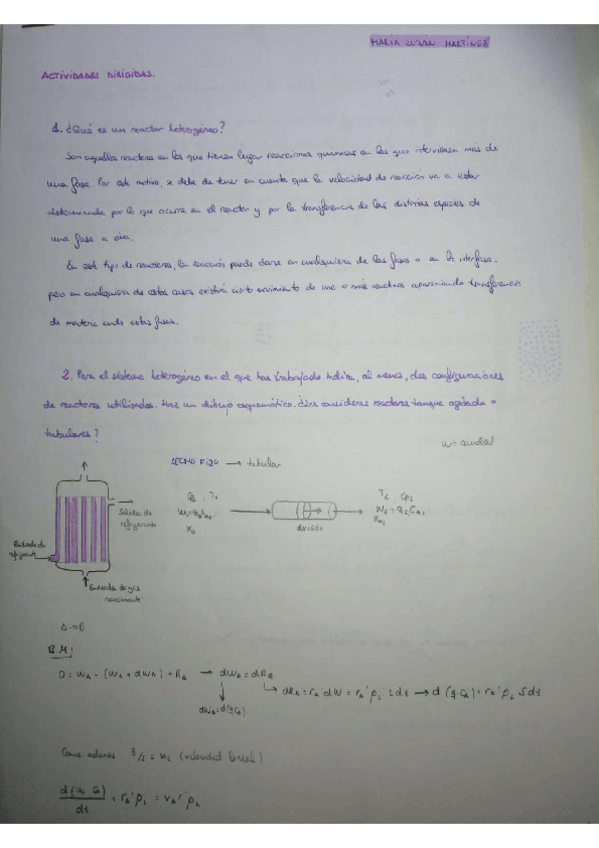 MARÍA LUJÁN MARTÍNEZ
ACTIVIDADES DIRIGIDAS.
1. ¿Qué es un reactor heterogéneo?
Son aquellos reactores en los que tienen lugar reacciones químicas en las que intervienen más de
una fase. Por este motivo, se debe de tener en cuenta que la velocidad de reacción va a estar
determinada por lo que ocurre en el reactor y por la transferencia de las distintas especies de
una fase a otra.
En este tipo de reactores, la reacción puede darse en cualquiera de las fases o en la interfase,
pero en cualquiera de estos casos existirá cierto movimiento de uno o más reactivos apareciendo transferencia
de materia entre estas fases.
2. Para el sistema heterogéneo en el que has trabajado indica, al menos, dos configuraciones
de reactores utilizadas. Haz un dibujo esquemático. ¿Los consideras reactores tanque agitado o
tubulares?
w = caudal
LECHO FIJO → tubular
Salida de
refrigerante
Entrada de
refrigerante
Entrada de gas
A → B
B.M:
0 = WA - (WA + dWA) + RA → dWA = dRA
dRA = rA' dW = rA' ρL S dz → d(q CA) = rA' ρL S dz
dWA = d(q CA)
Como además (velocidad lineal)